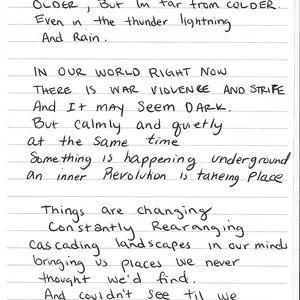 OLDER, But Im far from COLDER.
Even in the thunder lightning
And Rain.
IN OUR WORLD RIGHT NOW
THERE IS WAR VIOLENCE AND STRIFE
And It may Seem DARK.
But Calmly and quietly
at the Same time
Something is happening underground
an inner Revolution is takeing Place
Things are changing
Constantly Rearanging
cascading landscapes in our minds
bringing us places we never
thought we'd find.
And couldn't see til we